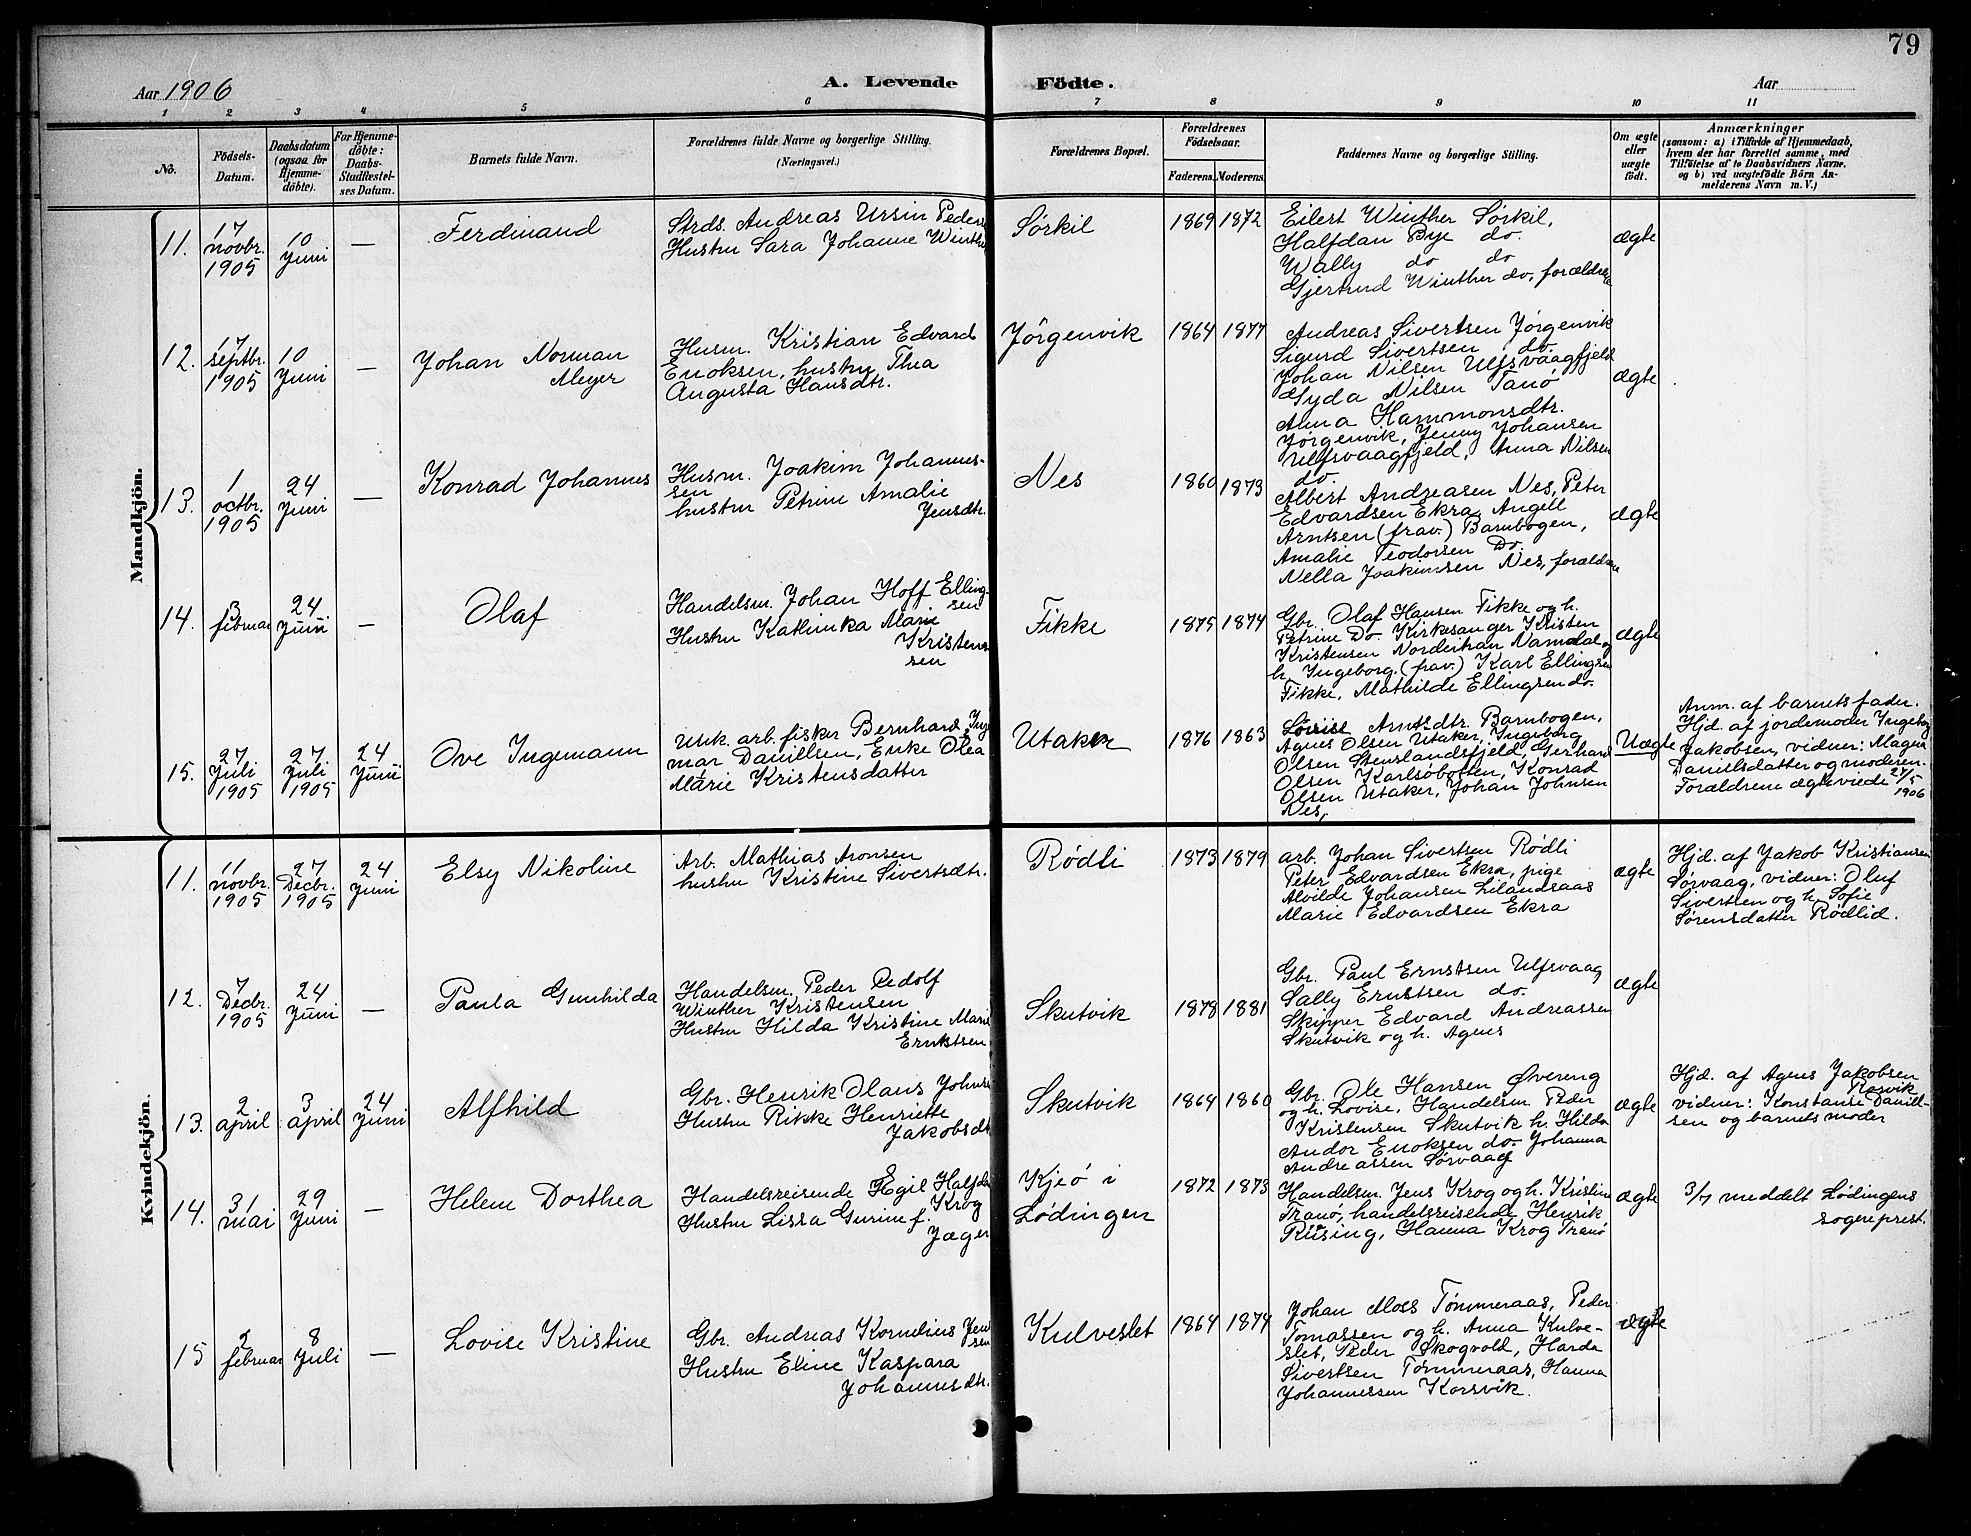 79
Aar 1906
A. Levende Födte.
Aar
1 2 3 4 5 6 7 8 9 10 11
No.
Födsels-Datum.
Daabsdatum (ogsaa for Hjemmedöbte).
For Hjemmedöbte: Daabs-Stadfæstelses Datum.
Barnets fulde Navn.
Forældrenes fulde Navne og borgerlige Stilling.
(Næringsvei.)
Forældrenes Bopæl.
Forældrenes Födselsaar.
Faderens. Moderens.
Faddernes Navne og borgerlige Stilling.
Om ægte eller uægte födt.
Anmærkninger
(saasom: a) i Tilfælde af Hjemmedaab,
hvem der har forrettet samme, med
Tilföielse af to Daabsvidners Navne.
og b) ved uægtefödte Börn An-
melderens Navn m. V.)
Mandkjön.
11.
17 novbr. 1905
10 Juni
—
Ferdinand
Strds. Andreas Ursin Peders
Hustru Sara Johanne Winth
Sørkil
1869 1872
Eilert Winther Sørkil,
Halfdan Bye do.
Wally do do
Gjertrud Winther do, forældre
ægte
12.
17 septbr. 1905
10 Juni
—
Johan Norman
Meyer
Husm. Kristian Edvard
Enoksen, hustru Thea
Augusta Hansdtr.
Jørgenvik
1864 1877
Andreas Sivertsen Jørgenvik
Sigurd Sivertsen do.
Johan Nilsen Ulfsvaagfjeld
Gyda Nilsen Tanø,
Anna Hammonsdtr.
Jørgenvik, Jenny Johansen
Ulfsvaagfjeld, Anna Nilsen
do.
ægte
13.
1 octbr. 1905
24 Juni
—
Konrad Johannes
Husm. Joakim Johannes-
sen
hustru Petrine Amalie
Jensdtr.
Nes
1860 1873
Albert Andreasen Nes, Peter
Edvardsen Ekra, Angell
Arntsen (frav.) Barnbogen,
Amalie Teodorsen Do.
Nella Joakimsen Nes, forældrene
ægte
14.
3 februar
24 Juni
—
Olaf
Handelsm. Johan Hoff Elling-
sen
Hustru Kathinka Marie
Kristens
sen
Fikke
1875 1874
Gbr. Olaf Hansen Fikke og h.
Petrine Do. Kirkesanger Kristen
Kristensen Norderhan Namdal og
h. Ingeborg. (frav.) Karl Ellingsen
Fikke, Mathilde Ellingsen do.
ægte
15.
27 Juli 1905
27 Juli 1905
24 Juni
Ove Ingemann
Unk. arb. fisker Bernhard Inge
mar Daniellsen, Enke Olea
Marie Kristensdatter
Utaker
1876 1863
Lovise Arntsdtr. Barnbogen,
Agnes Olsen Utaker, Ingeborg
Olsen Stenslandsfjeld, Gerhard
Olsen Karlsøbotten, Konrad
Olsen Utaker, Johan Johnsen
Nes,
Uægte
Anm. af barnets fader.
Hjd. af jordemoder Ingeborg
Jakobsen, vidner: Magna
Daniellsdatter og moderen.
Forældrene ægteviede 27/5
1906
Kvindekjön.
11.
11 novbr. 1905
27 Decbr. 1905
24 Juni
Elsy Nikoline
Arb. Mathias Aronsen
hustru Kristine Sivertsdtr.
Rødli
1873 1879
arb. Johan Sivertsen Rødli
Peter Edvardsen Ekra, pige
Alvilde Johansen Lilandsaas
Marie Edvardsen Ekra
ægte
Hjd. af Jakob Kristiansen
Sørvaag, vidner: Oluf
Sivertsen og h. Sofie
Sørensdatter Rødlid.
12.
7 Decbr. 1905
24 Juni
—
Paula Gunhilda
Handelsm. Peder Pedolf
Winther Kristensen
Hustru Hilda Kristine Marie
Ernstsen
Skutvik
1878 1881
Gbr. Paul Ernstsen Ulfsvaag
Sally Ernstsen do.
Skipper Edvard Andreassen
Skutvik og h. Agnes
ægte
13.
2 april
3 april
24 Juni
Alfhild
Gbr. Henrik Olaus Johns
Hustru Rikke Henriette
Jakobsdt
Skutvik
1864 1860
Gbr. Ole Hansen Øvereng
og h. Lovise, Handelsm. Peder
Kristensen Skutvik h. Hilda
Andor Enoksen do. Johanna
Andreassen Sørvaag
ægte
Hjd. af Agnes Jakobsen
Rosvik
vidner: Konstanse Daniell-
sen og barnets moder
14.
31 mai
29 Juni
—
Helene Dorthea
Handelsreisende Egil Halfdan
Krog
Hustru Lissa Gurine f.
Jæger
Kjeø i
Lødingen
1872 1873
Handelsm. Jens Krog og h. Kristine
Tranø, handelsreisende Henrik
Riising, Hanna Krog Tranø
ægte
3/7 meddelt Lødingens
sogneprest.
15
2 februar
8 Juli
—
Lovise Kristine
Gbr. Andreas Kornelius Jen
sen
Hustru Eline Kaspara
Johannesdtr.
Kulveslet
1864 1874
Johan Moss Tømmeraas, Peder
Tomassen og h. Anna Kulve-
slet, Peder Skogvold, Harda
Sivertsen Tømmeraas, Hanna
Johannessen Korsvik.
ægte